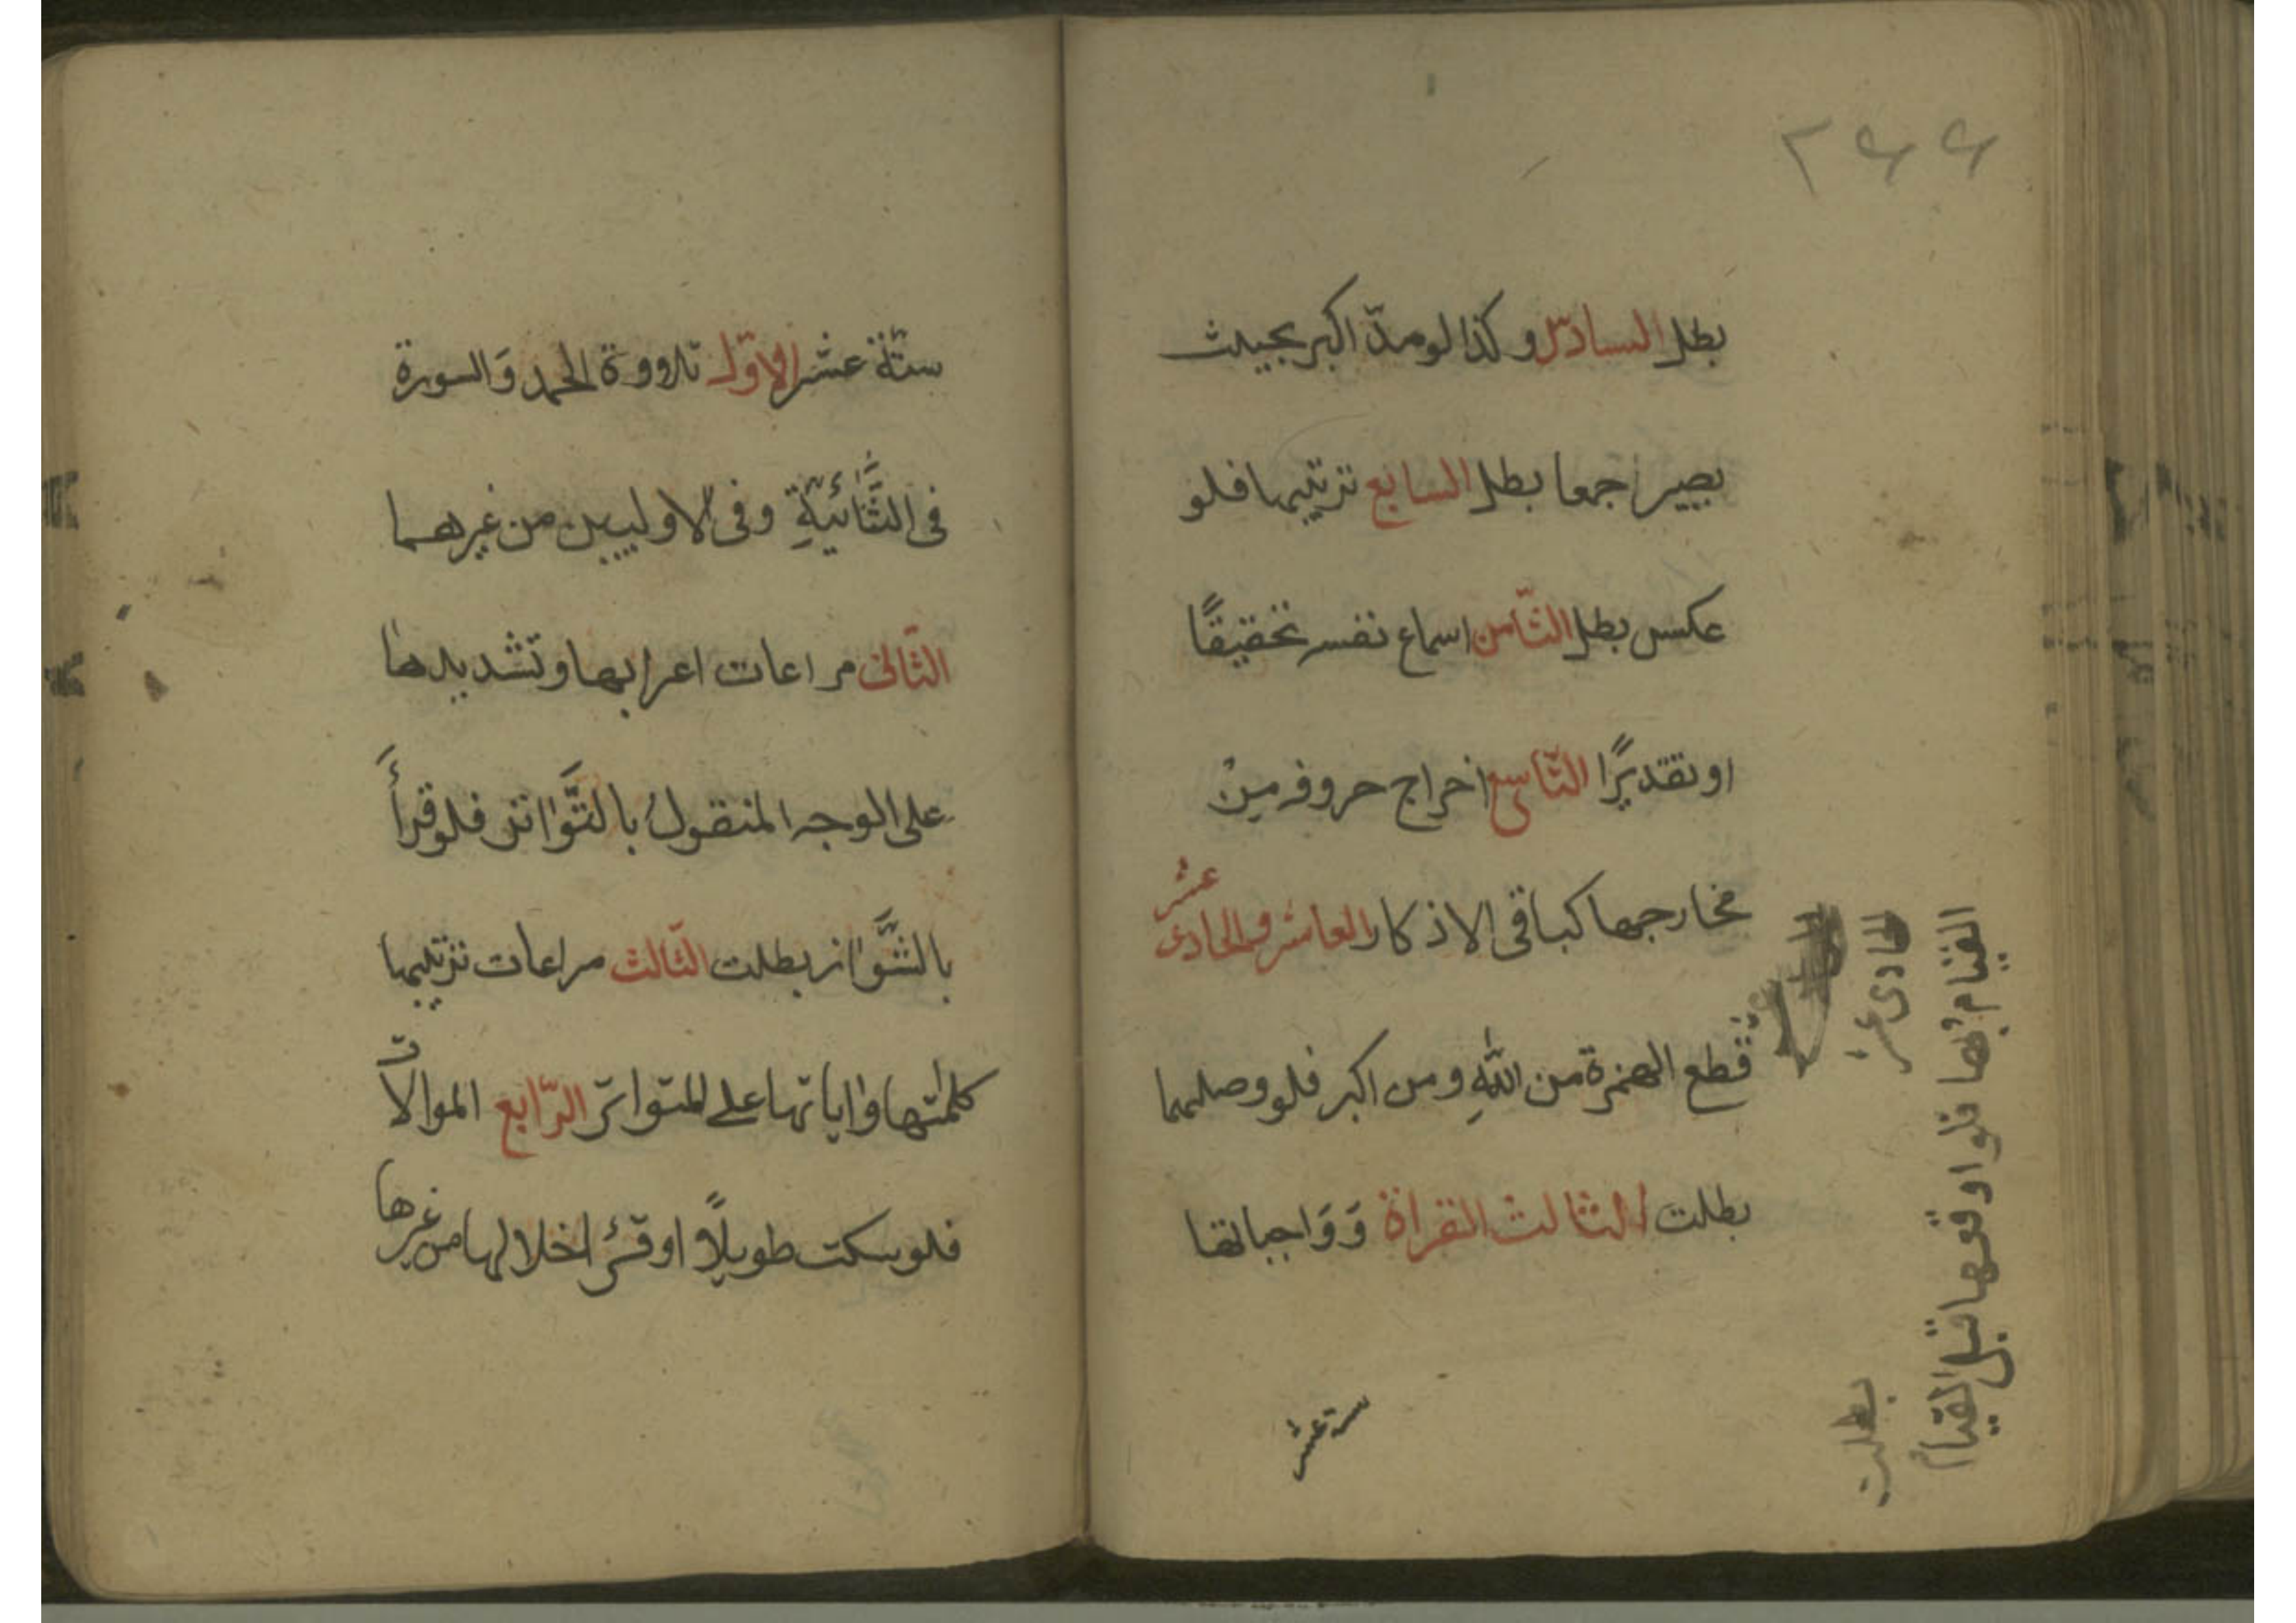 ۲۶۶
بطل السادس وكذا لو مدّ اكبر بحيث
يصير جمعا بطل السابع ترتيبها فلو
عكس بطل الثّامن اسماع نفسه تحقيقًا
او تقديرًا التّاسع اخراج حروفه مِنْ
مخارجها كباقى الاذكار العاشر والحادى عشر
قطع الهمزة من اللّٰهِ ومن اكبر فلو وصلهما
بطلت الثالث القراة وَوَاجباتها
الحادى عشر
القيام بها فلو اوقعها قبل القيام
بطلت
ستة عشر
ستّة عشر الاوّل تلاووة الحمد وَالسورة
فى الثَّنائيّةِ وفى الاوليين من غيرهما
الثّانى مراعات اعرابها وتشديدها
على الوجه المنقول بالتَّواتر فلو قرأَ
بالشَّواز بطلت الثّالث مراعات ترتيب
كلمتها واياتها على المتواتر الرّابع الموالاّة
فلو سكت طويلاً او قرئ اخلالها من غيرها